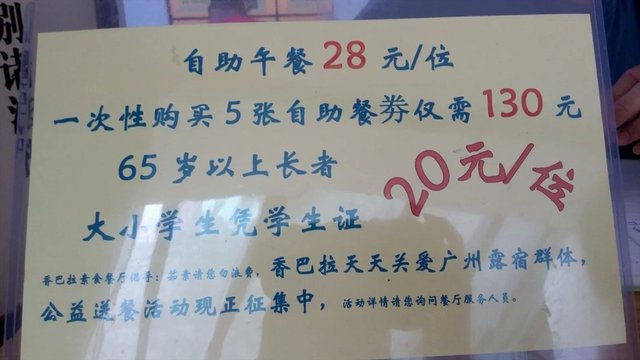 自助午餐28元/位
一次性购买5张自助餐券仅需130元
65岁以上长者
20元/位
大小学生凭学生证
香巴拉素食餐厅倡导：茹素请您勿浪费，香巴拉天天关爱广州露宿群体，
公益送餐活动现正征集中，活动详情请您询问餐厅服务人员。